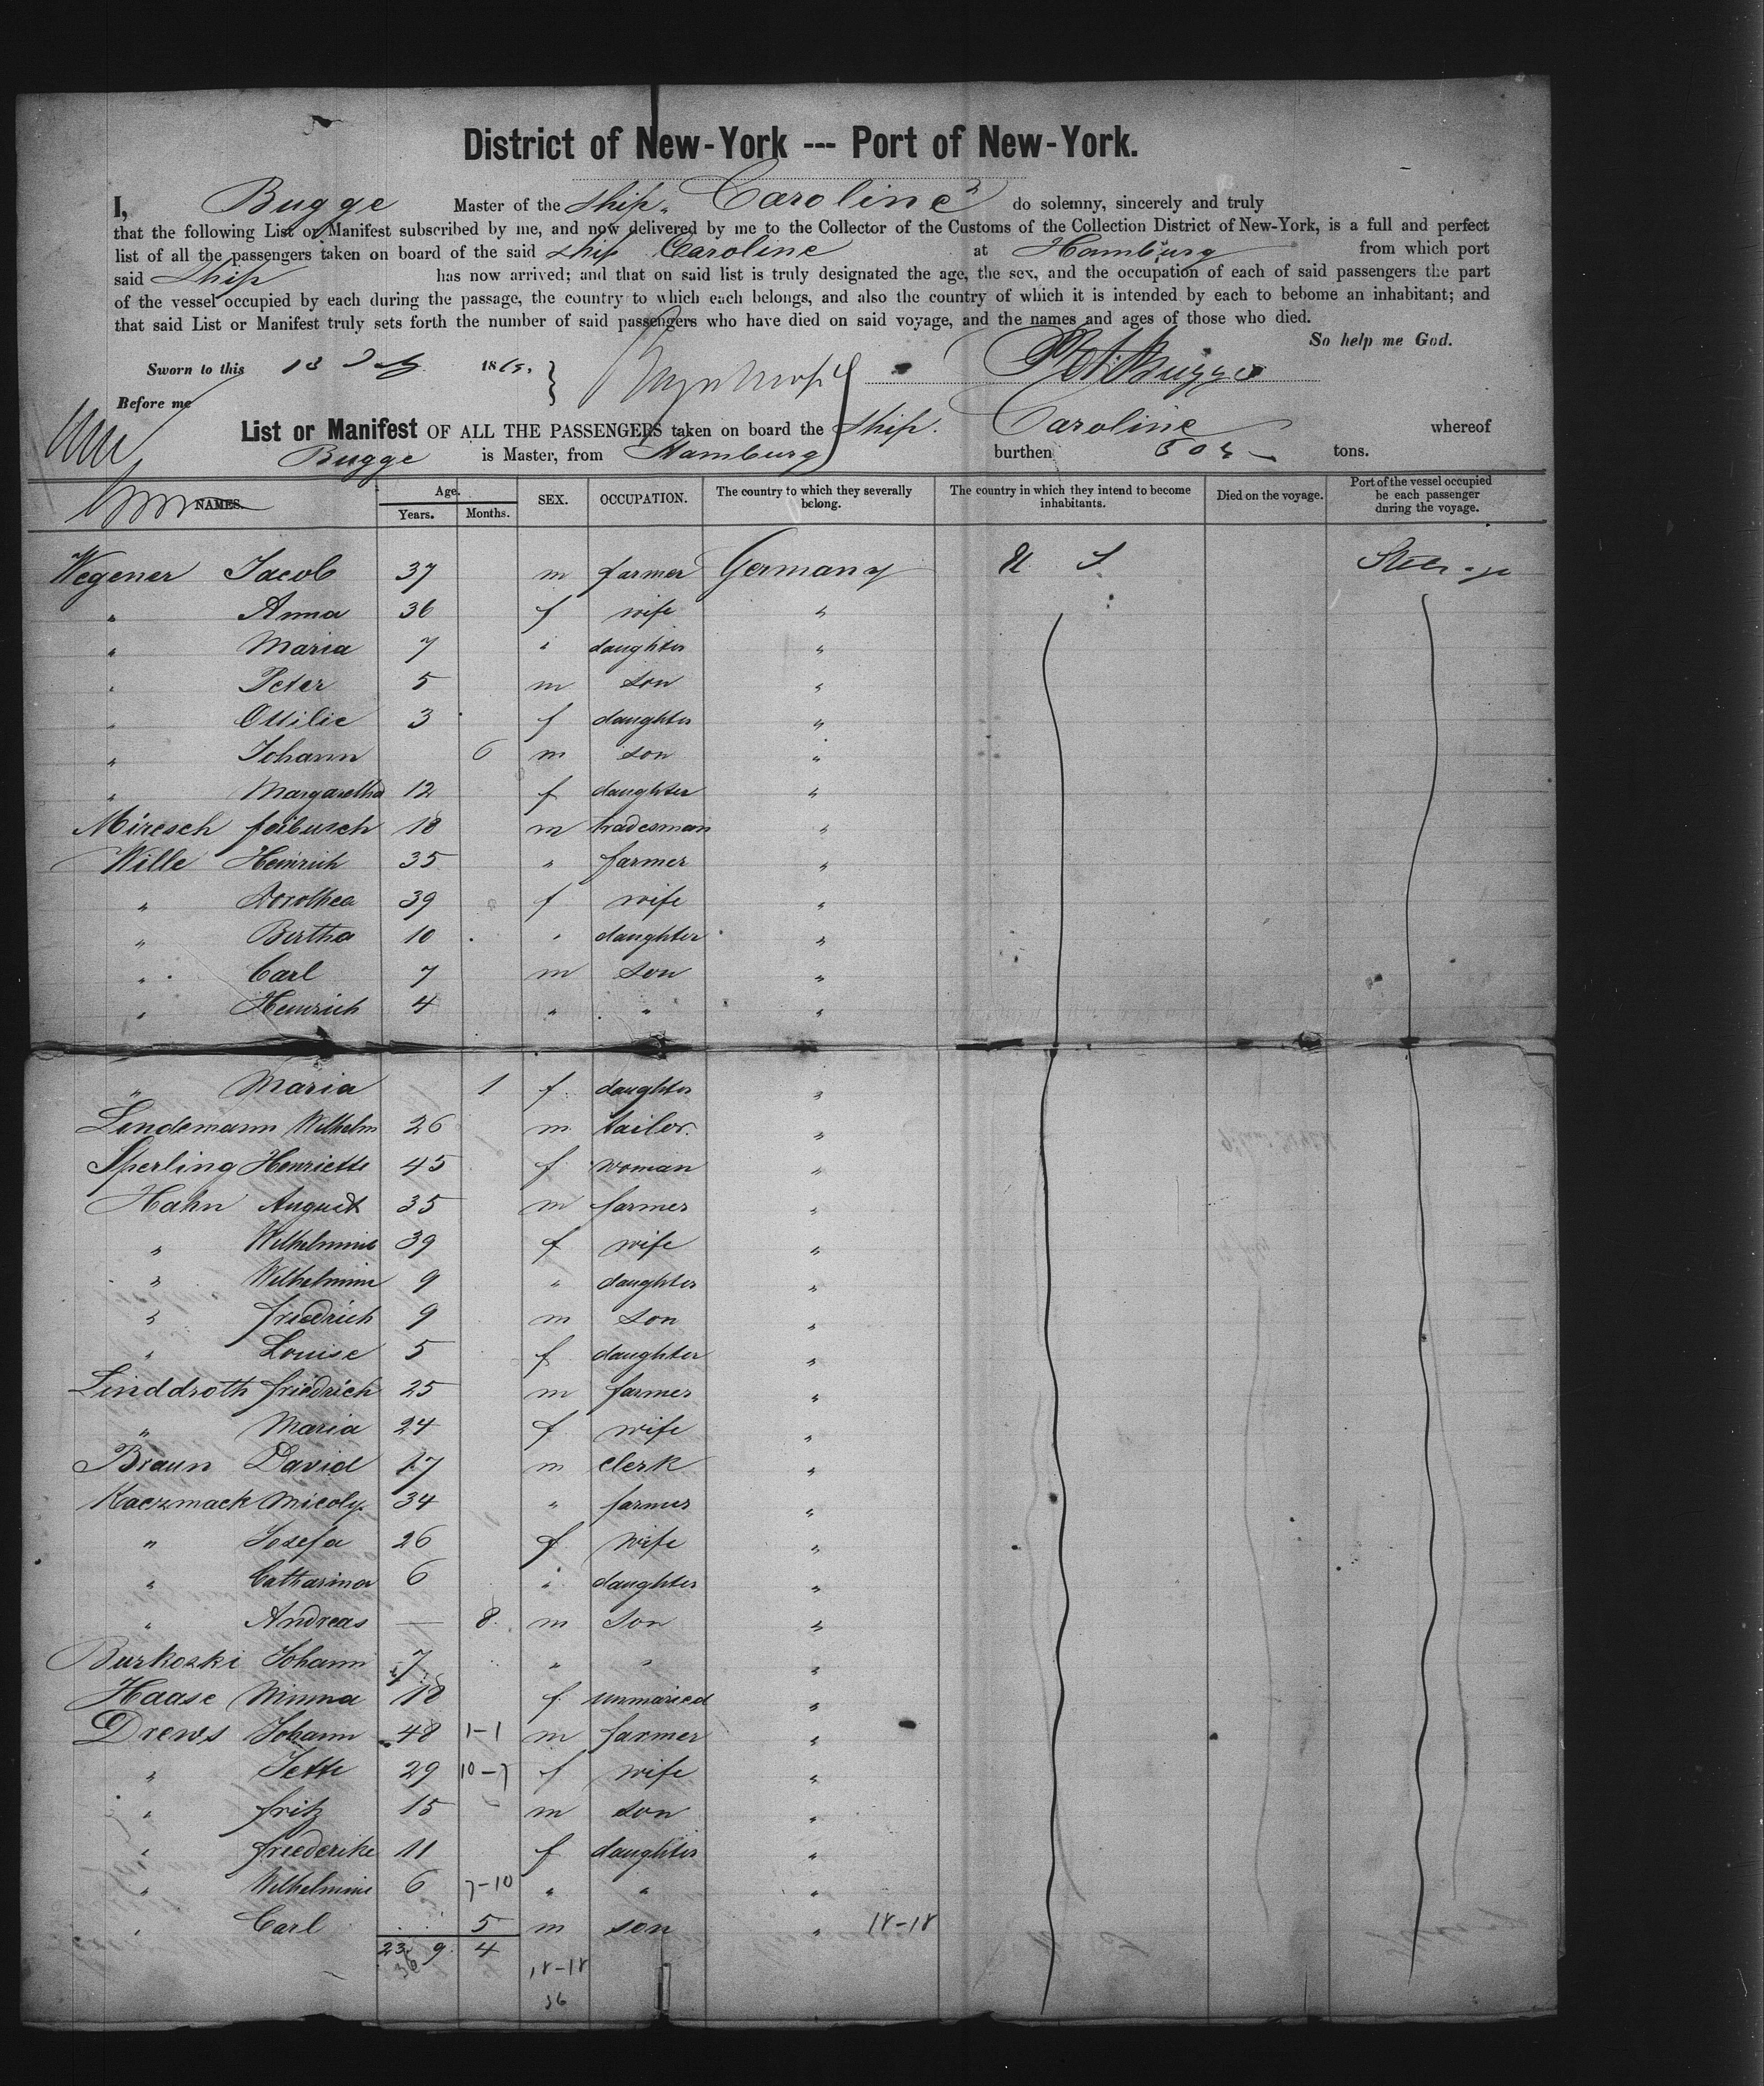 District of New-York --- Port of New-York.
I, Bugge Master of the ship „Caroline" do solemny, sincerely and truly
that the following List or Manifest subscribed by me, and now delivered by me to the Collector of the Customs of the Collection District of New-York, is a full and perfect
list of all the passengers taken on board of the said ship Caroline at Hamburg from which port
said ship has now arrived; and that on said list is truly designated the age, the sex, and the occupation of each of said passengers the part
of the vessel occupied by each during the passage, the country to which each belongs, and also the country of which it is intended by each to bebome an inhabitant; and
that said List or Manifest truly sets forth the number of said passengers who have died on said voyage, and the names and ages of those who died.
So help me God.
Sworn to this 13 1865. Bugge
Before me
List or Manifest OF ALL THE PASSENGERS taken on board the Ship. Caroline whereof
Bugge is Master, from Hamburg burthen tons.
NAMES. Age. Years. Months. SEX. OCCUPATION. The country to which they severally belong. The country in which they intend to become inhabitants. Died on the voyage. Port of the vessel occupied be each passenger during the voyage.
Wegener Jacob 37 m farmer Germany U S Steerage
" Anna 36 f wife "
" Maria 7 " daughter "
" Peter 5 m son "
" Ottilie 3 f daughter "
" Johann 6 m son "
" Margaretha 12 f daughter "
Miresch feibusch 18 m tradesman "
Wille Heinrich 35 " farmer "
" Dorothea 39 f wife "
" Bertha 10 " daughter "
" Carl 7 m son "
" Heinrich 4 " " "
" Maria 1 f. daughter "
Lindemann Wilhelm 26 m tailor. "
Sperling Henriette 45 f woman "
Hahn August 35 m farmer "
" Wilhelmine 39 f wife "
" Wilhelmine 9 " daughter "
" friedrich 9 m son "
" Louise 5 f daughter "
Linddroth friedrich 25 m farmer "
" Maria 24 f wife "
Braun David 17 m clerk "
Kaczmack Micoly. 34 " farmer "
" Josefa 26 f wife "
" Catharina 6 " daughter "
" Andreas — 8. m son "
Burkoski Johann 7 " " "
Haase Minna 18 f. unmaried "
Drews Johann 48 1-1 m farmer "
" Jette 29 10-7 f wife "
" fritz 15 m son "
" friederike 11 f daughter "
" Wilhelmine 6 7-10 " " "
" Carl 5 m son " 18-18
23 9. 4
36 18-18
36